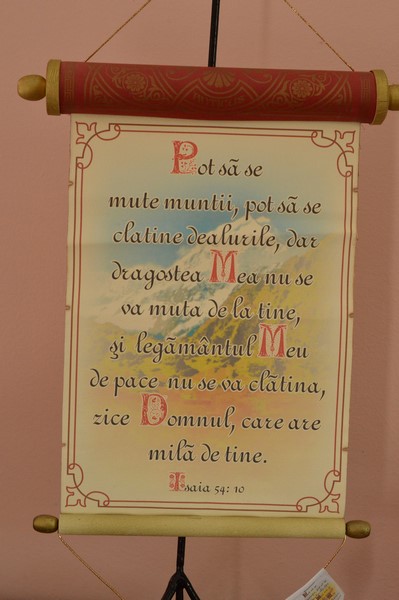 Pot sã se
mute muntii, pot sã se
clatine dealurile, dar
dragostea Mea nu se
va muta de la tine,
şi legãmântul Meu
de pace nu se va clãtina,
zice Domnul, care are
milã de tine.
Isaia 54: 10